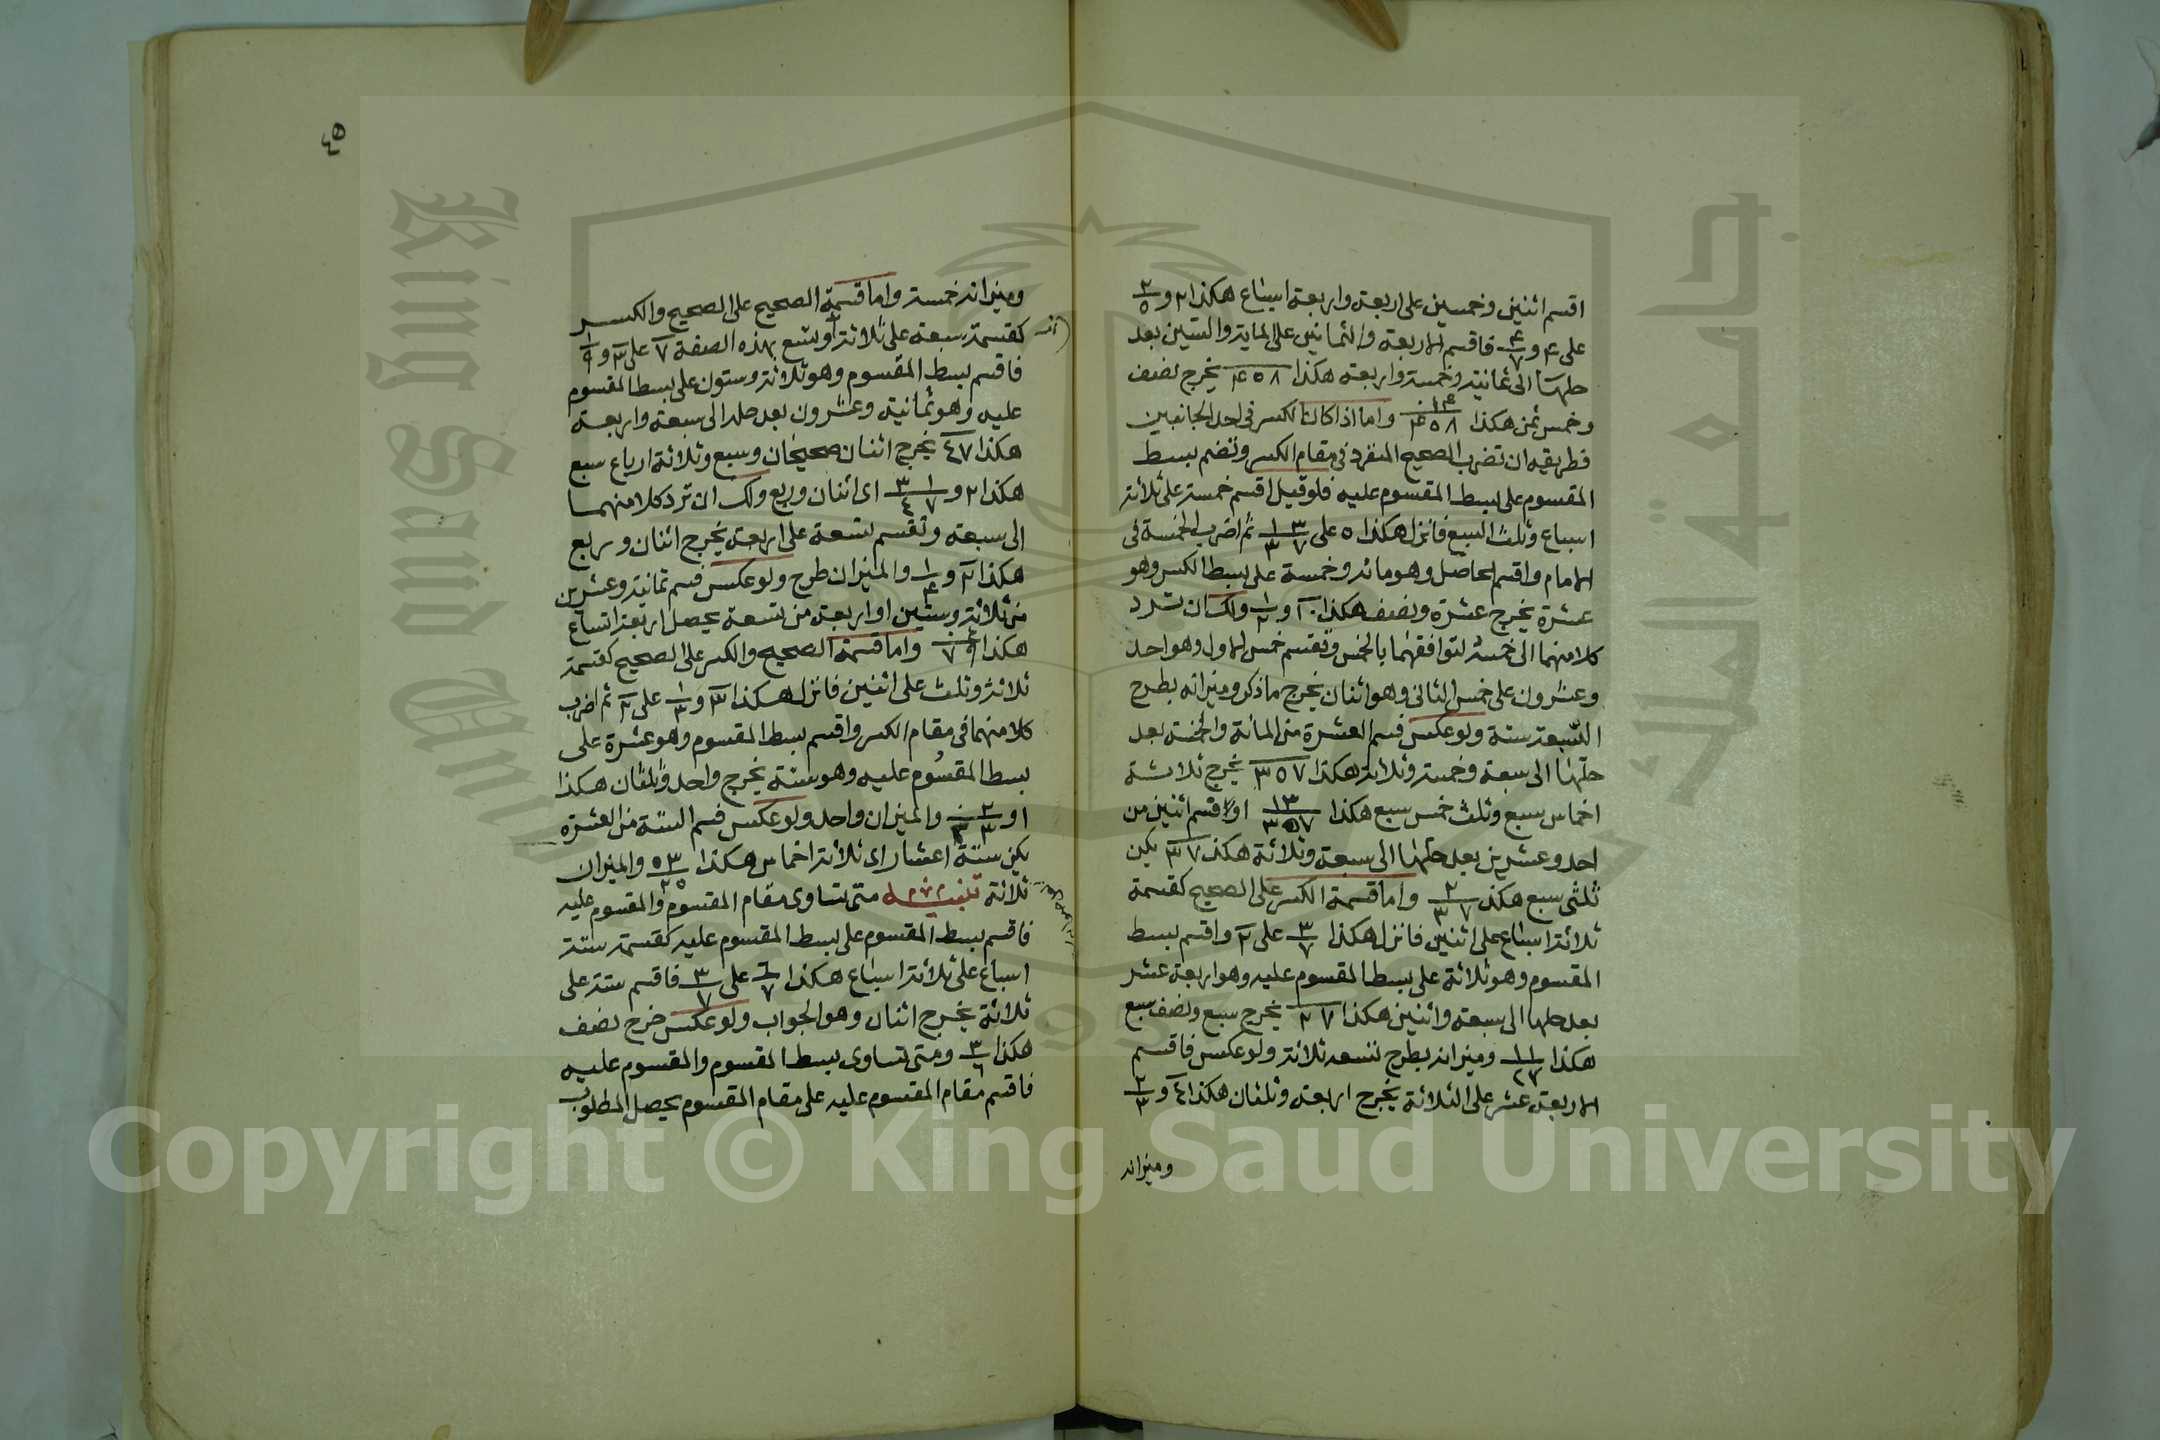 اقسم اثنين وخمسين على اربعة واربعة اسباع هكذا ٢ و ٢/٥
على ۴ و ۴/٧ فاقسم الاربعة والثمانين على الماية والستين بعد
حلهما الى ثمانية وخمسة واربعة هكذا ۴٥٨ يخرج نصف
وخمس ثمن هكذا واما اذا كان الكسر فى احد الجانبين
فطريقه ان تضرب الصحيح المنفرد فى مقام الكسر وتقسم بسط
المقسوم على بسط المقسوم عليه فلو قيل اقسم خمسة على ثلاثة
اسباع وثلث السبع فانزل هكذا ٥ على ١ ٣/٣ ٧ ثم اضرب الخمسة فى
الامام واقسم الحاصل وهو مائة وخمسة على بسط الكسر وهو
عشرة يخرج عشرة ونصف هكذا ١٠ و ١/٢ ولك ان ترد
كلا منهما الى خمسه لتوافقهما بالخمس وتقسم خمس الاول وهو احد
وعشرون على خمس الثانى وهو اثنان يخرج ما ذكر وميزانه بطرح
التسعة ستة ولو عكس فسم العشرة من المائة والخمسة بعد
حلها الى سبعة وخمسة وثلاثة هكذا ٣٥٧ يخرج ثلاثة
اخماس سبع وثلث خمس سبع هكذا ١٣/٣٥٧ او اقسم اثنين من
احد وعشرين بعد حلها الى سبعة وثلاثة هكذا ٣٧ يكن
ثلثى سبع هكذا ٢/٣٧ واما قسمة الكسر على الصحيح كقسمة
ثلاثة اسباع على اثنين فانزل هكذا ٣/٧ على ٢ واقسم بسط
المقسوم وهو ثلاثة على بسط المقسوم عليه وهو اربعة عشر
بعد حلها الى سبعة واثنين هكذا ٢٧ يخرج سبع ونصف سبع
هكذا ١١/٢٧ وميزانه بطرح تسعه ثلاثة ولو عكس فاقسم
الاربعة عشر على الثلاثة يخرج اربعة وثلثان هكذا ٤ و ٢/٣
وميزانه
٤٥
وميزانه خمسة واما قسمة الصحيح على الصحيح والكسر
كقسمة سبعة على ثلاثة وتسع بهذه الصفة ٧ على ٣ و ١/٩
فاقسم بسط المقسوم وهو ثلاثة وستون على بسط المقسوم
عليه وهو ثمانية وعشرون بعد حله الى سبعة واربعة
هكذا ٤٧ يخرج اثنان صحيحان وسبع وثلاثة ارباع سبع
هكذا ٢ و ٣ ١/٤ ٧ اى اثنان وربع ولك ان ترد كلا منهما
الى سبعه وتقسم تسعة على اربعة يخرج اثنان وربع
هكذا ٢ و ١/۴ والميزان طرح ولو عكس فسم ثمانية وعشرين
من ثلاثة وستين او اربعة من تسعة يحصل اربعة اتساع
هكذا واما قسمة الصحيح والكسر على الصحيح كقسمة
ثلاثة وثلث على اثنين فانزل هكذا ٣ و ١/٣ على ٢ ثم اضرب
كلا منهما فى مقام الكسر واقسم بسط المقسوم وهو عشرة على
بسط المقسوم عليه وهو ستة يخرج واحد وثلثان هكذا
١ و ٢/٣ والميزان واحد ولو عكس فسم الستة من العشرة
يكن ستة اعشار اى ثلاثة اخماس هكذا والميزان
ثلاثة تنبيه متى تساوى مقام المقسوم والمقسوم عليه
فاقسم بسط المقسوم على بسط المقسوم عليه كقسمة ستة
اسباع على ثلاثة اسباع هكذا ٦/٧ على ٣/٧ فاقسم ستة على
ثلاثة يخرج اثنان وهو الجواب ولو عكس خرج نصف
هكذا ٣/٦ ومتى تساوى بسط المقسوم والمقسوم عليه
فاقسم مقام المقسوم عليه على مقام المقسوم يحصل المطلوب
King Saud University
جامعة الملك
Copyright © King Saud University